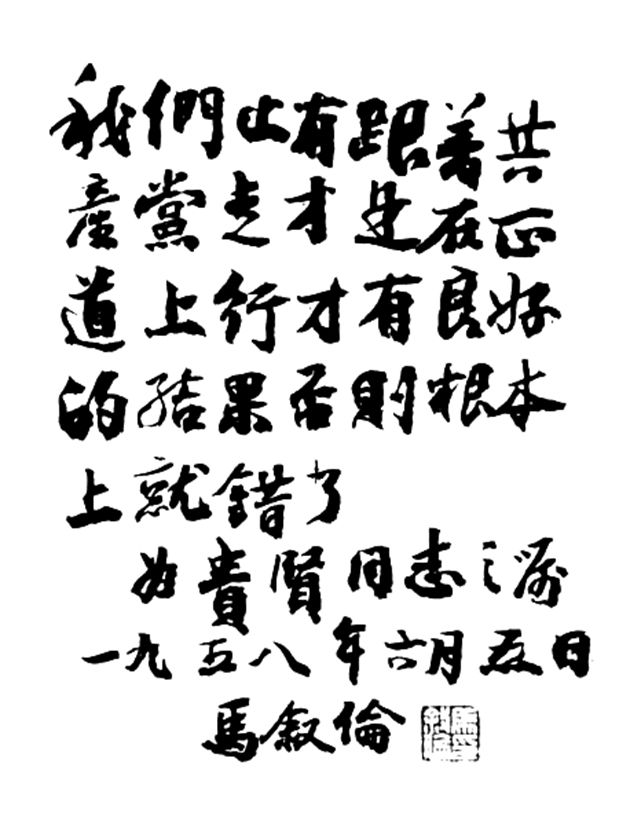 我們止有跟著共
產黨走才是在正
道上行才有良好
的结果否則根本
上就錯了
为貴賢同志之嘱
一九五八年六月五日
馬叙倫